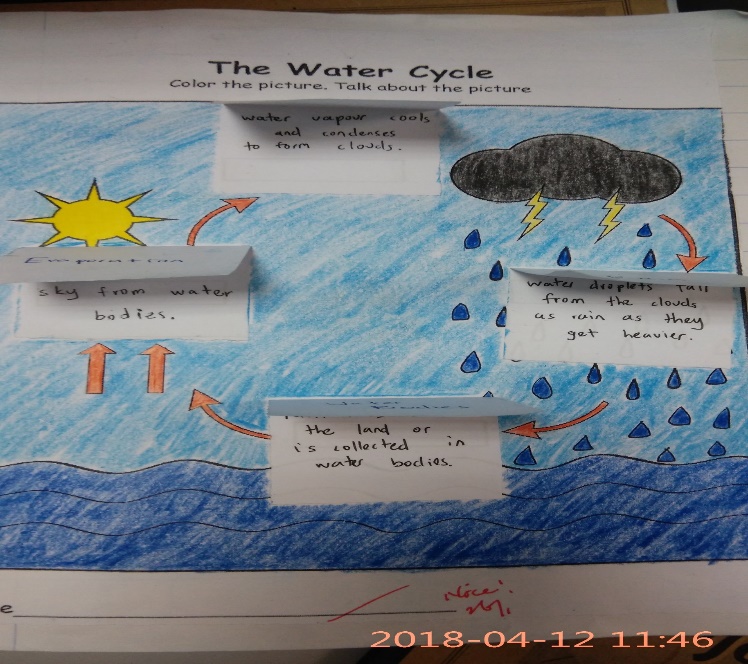 The Water Cycle
Color the picture. Talk about the picture
water vapour cools
and condenses
to form clouds.
Evaporation
sky from water
bodies.
water droplets fall
from the clouds
as rain as they
get heavier.
Water
Bodies
the land or
is collected in
water bodies.
e
Nice!
2018-04-12 11:46